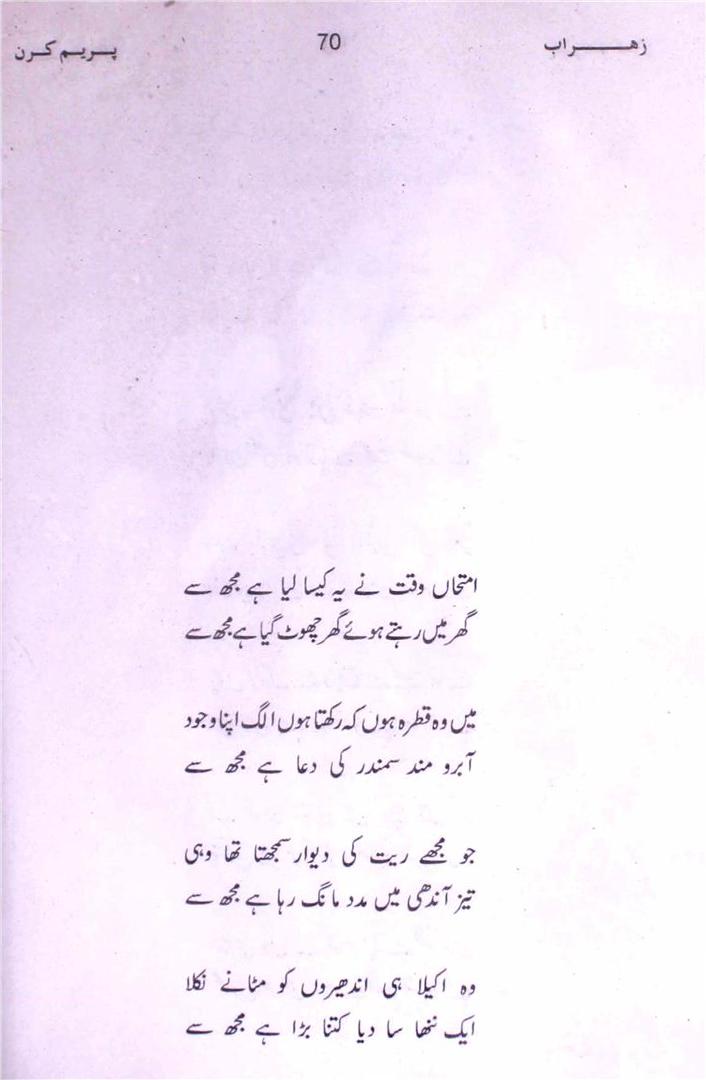 زھراب 70 پریم کرن
امتحاں وقت نے یہ کیسا لیا ہے مجھ سے
گھر میں رہتے ہوئے گھر چھوٹ گیا ہے مجھ سے
میں وہ قطرہ ہوں کہ رکھتا ہوں الگ اپنا وجود
آبرو مند سمندر کی دعا ہے مجھ سے
جو مجھے ریت کی دیوار سمجھتا تھا وہی
تیز آندھی میں مدد مانگ رہا ہے مجھ سے
وہ اکیلا ہی اندھیروں کو مٹانے نکلا
ایک ننھا سا دیا کتنا بڑا ہے مجھ سے